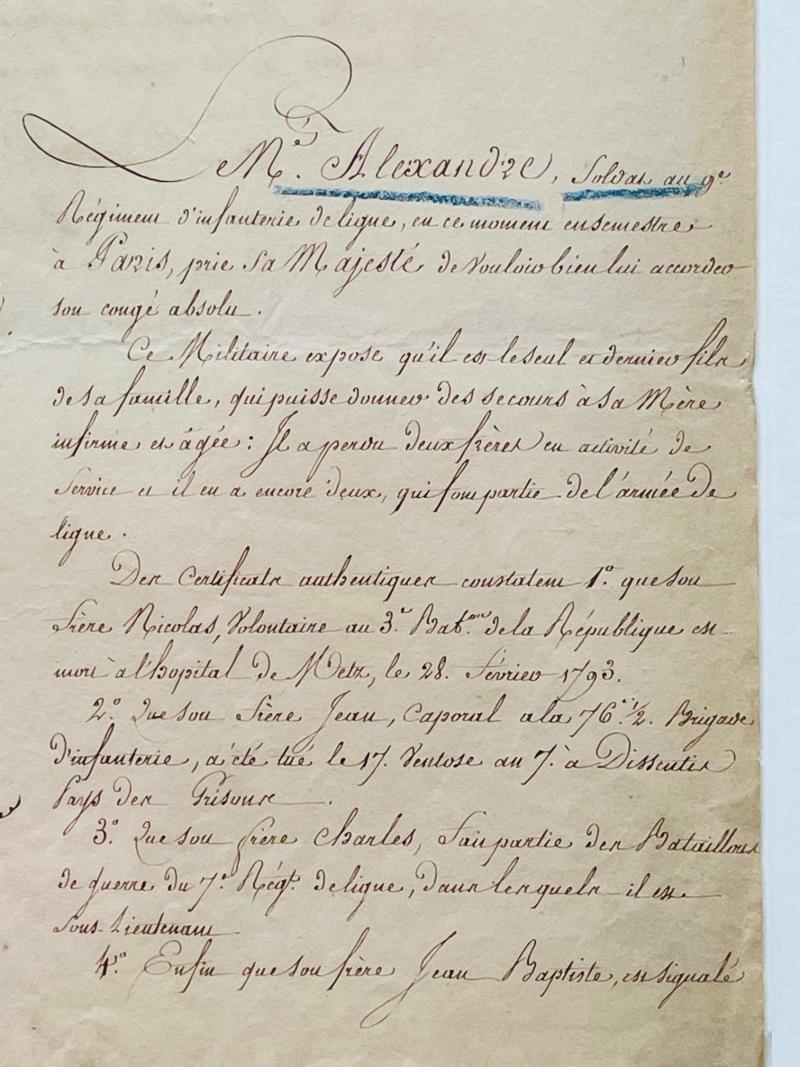 Le Mr. Alexandre, Soldat au 9e
Régiment d'infanterie de ligne, en ce moment en semestre
à Paris, prie Sa Majesté de vouloir bien lui accorder
son congé absolu.
Ce Militaire expose qu'il est le seul et dernier fils
de sa famille, qui puisse donner des secours à sa Mère
infirme et âgée : Il a perdu deux frères en activité de
Service et il en a encore deux, qui font partie de l'armée de
ligne.
Des Certificats authentiques constatent 1o. que son
frère Nicolas, Volontaire au 3e. Baton. de la République est
mort à l'hopital de Metz, le 28. février 1793.
2o. Que son frère Jean, Caporal a la 76e. 1/2. Brigade
d'infanterie, a été tué le 17. Ventose an 7. à Dissentis
Pays des Grisons.
3o. Que son frère Charles, fait partie des Bataillons
de guerre du 7e Régt. de ligne, dans lesquels il est
Sous-Lieutenant
4o. Enfin que son frère Jean Baptiste, est signalé